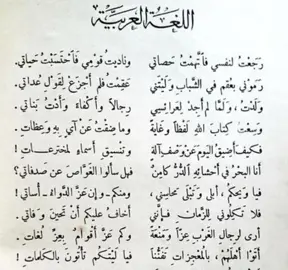 اللغة العربية
رجعت لنفسي فاتهمت حصاتي وناديت قومي فاحتسبت حياتي .
رموني بعقم في الشباب وليتني عقمت فلم أجزع لقول عداتي .
ولدت ، ولما لم أجد لعرائسي رجالاً وأكفاء وأدت بناتي .
وسعت كتاب الله لفظاً وغاية وما ضقت عن آي به وعظات .
فكيف أضيق اليوم عن وصف آلة وتنسيق أسماء لمخترعات !
أنا البحر في أحشائه الدر كامن فهل سألوا الغواص عن صدفاتي ؟
فيا ويحكم ، أبلى وتبلى محاسني ، ومنكم - وإن عز الدواء - أساتي !
فلا تكلوني للزمان فإني أخاف عليكم أن تحين وفاتي .
أرى لرجال الغرب عزاً ومنعة وكم عز أقوام بعز لغات .
أتوا أهلهم بالمعجزات تفننا فيا ليتكم تأتون بالكلمات !